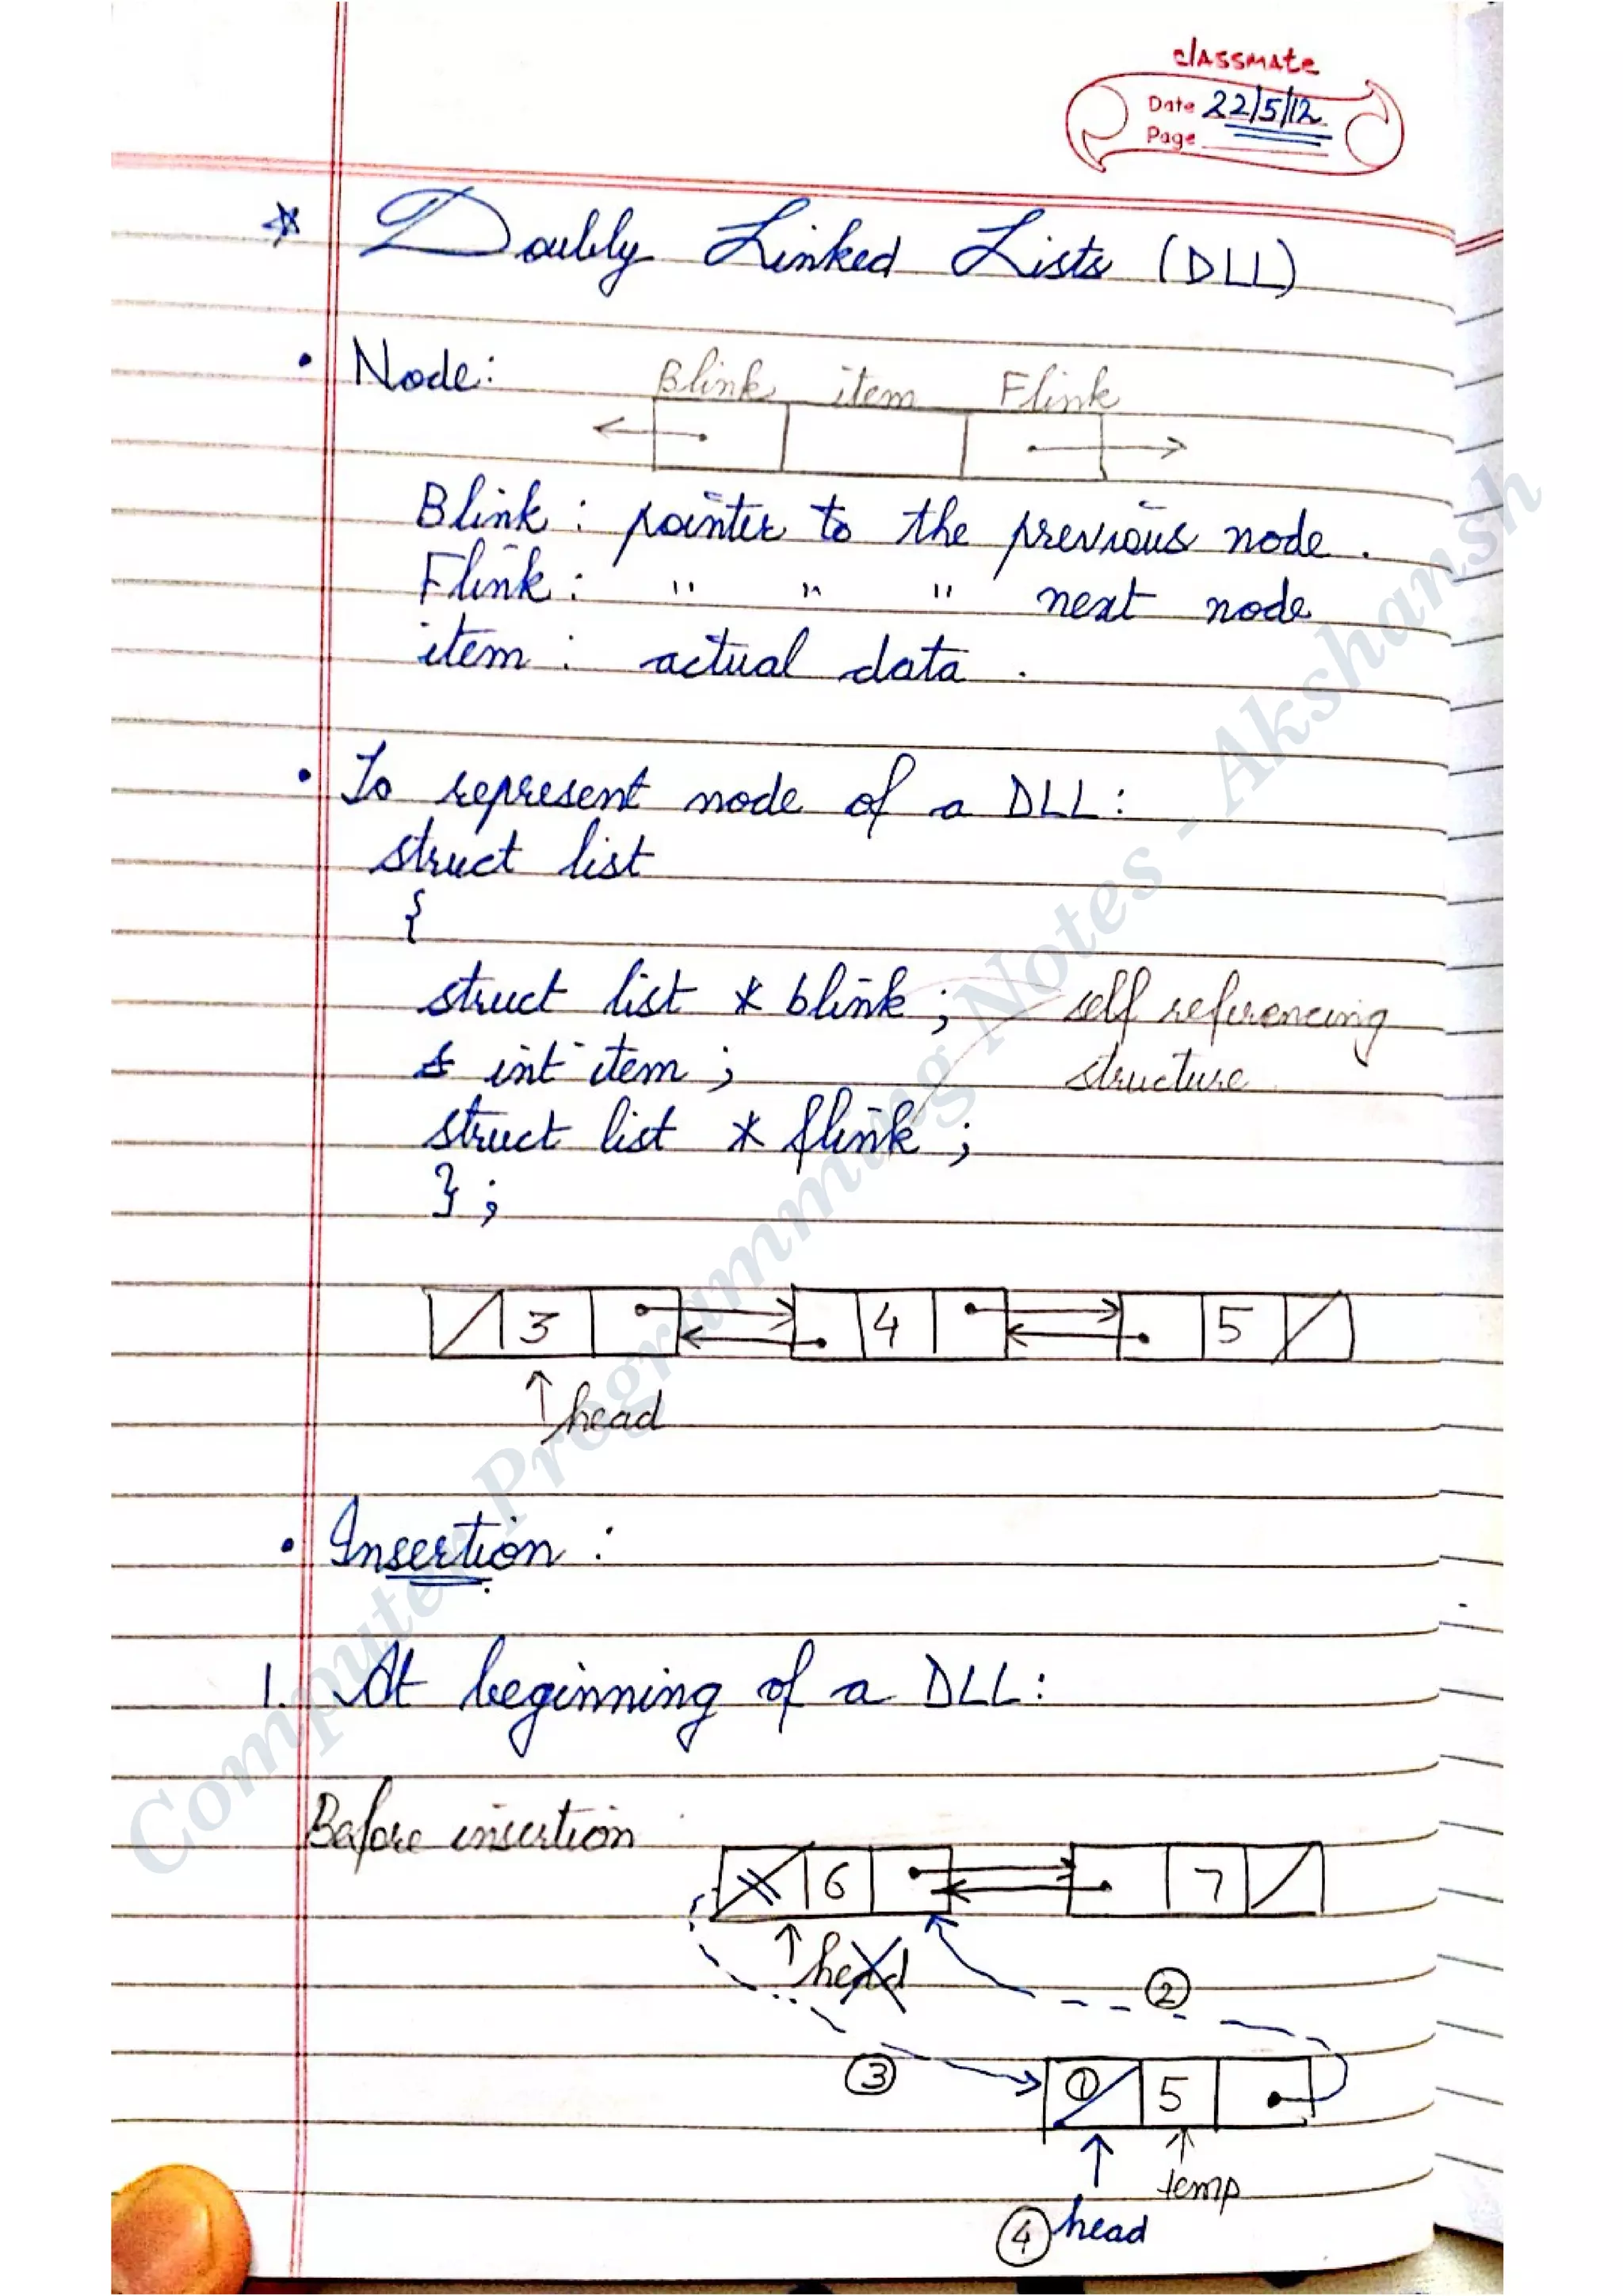 classmate
Date 22/5/12
Page
* Doubly Linked Lists (DLL)
• Node:
Blink item Flink
Blink : pointer to the previous node .
Flink : " " " next node
item : actual data .
• To represent node of a DLL :
struct list
{
struct list * blink ; self referencing
int item ; structure
struct list * flink ;
} ;
3 4 5
↑ head
• Insertion :
1. At beginning of a DLL :
Before insertion
6 7
↑ head
②
③ ① 5
↑ ↑
temp
④ head
Computer Programming Notes - Akshansh